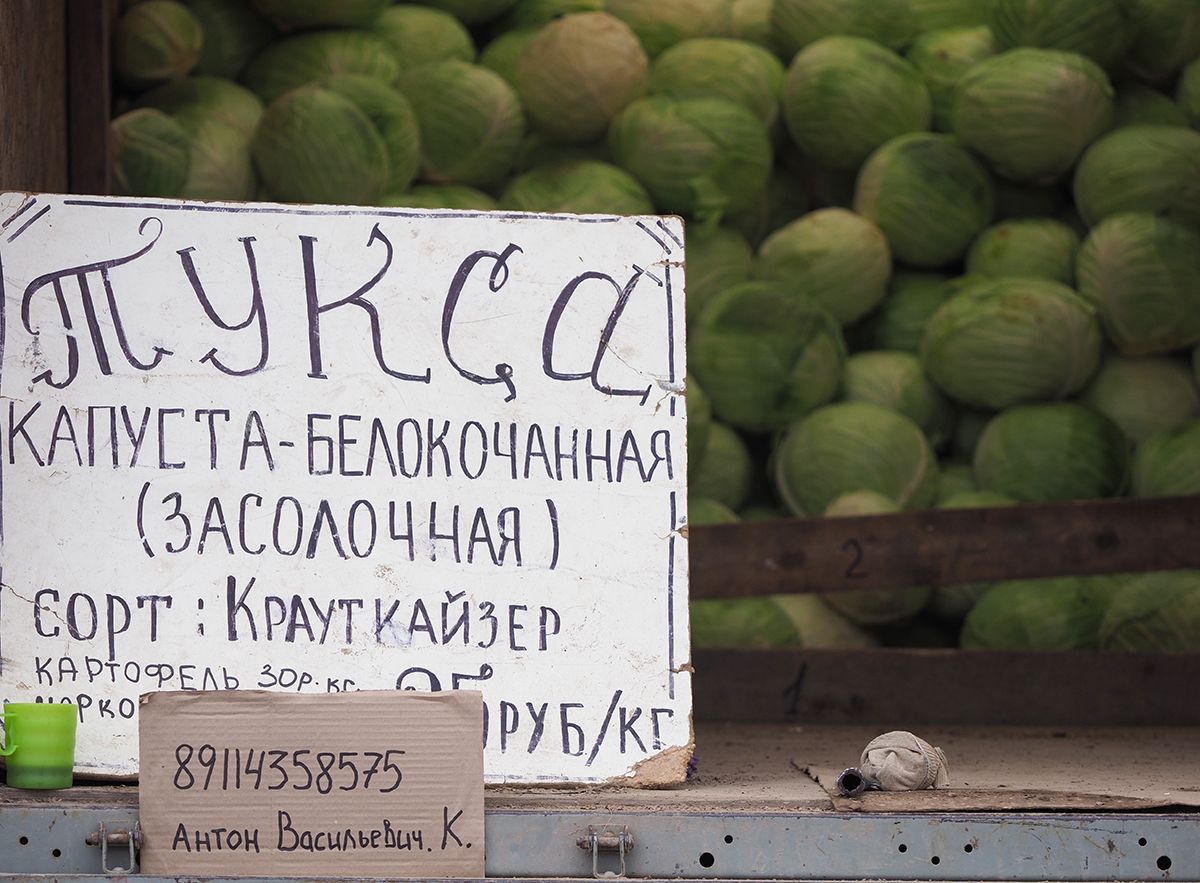 ТУКСА
КАПУСТА-БЕЛОКОЧАННАЯ
(ЗАСОЛОЧНАЯ)
СОРТ: КРАУТКАЙЗЕР
КАРТОФЕЛЬ 30Р. КГ
РУБ/КГ
89114358575
АНТОН ВАСИЛЬЕВИЧ. К.
2
1